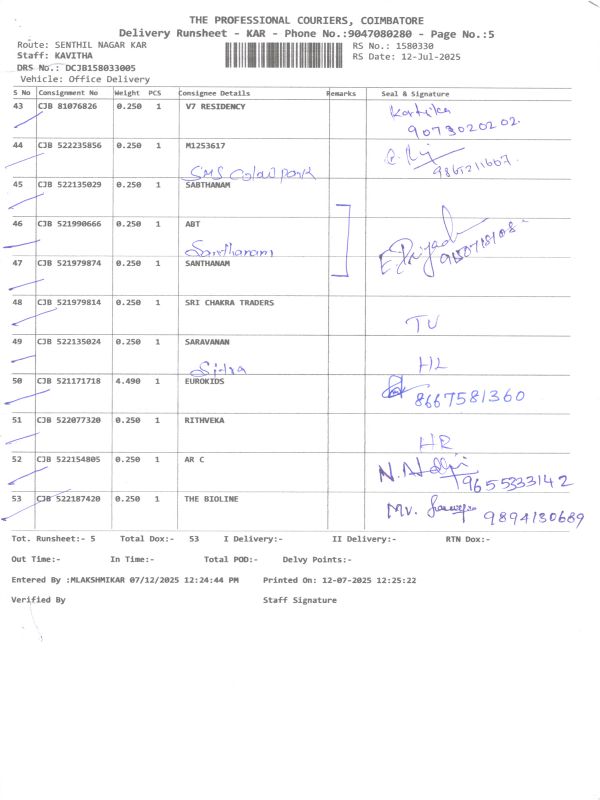 THE PROFESSIONAL COURIERS, COIMBATORE
Delivery Runsheet - KAR - Phone No.:9047080280 - Page No.:5
Route: SENTHIL NAGAR KAR RS No.: 1580330
Staff: KAVITHA RS Date: 12-Jul-2025
DRS No.: DCJB158033005
Vehicle: Office Delivery
S No Consignment No Weight PCS Consignee Details Remarks Seal & Signature
43 CJB 81076826 0.250 1 V7 RESIDENCY Kartika
9073020202
44 CJB 522235856 0.250 1 M1253617
SMS
45 CJB 522135029 0.250 1 SABTHANAM
46 CJB 521990666 0.250 1 ABT
Santhanam
47 CJB 521979874 0.250 1 SANTHANAM
48 CJB 521979814 0.250 1 SRI CHAKRA TRADERS
TU
49 CJB 522135024 0.250 1 SARAVANAN
HL
50 CJB 521171718 4.490 1 EUROKIDS
8667581360
51 CJB 522077320 0.250 1 RITHVEKA
HR
52 CJB 522154805 0.250 1 AR C
9655333142
53 CJB 522187420 0.250 1 THE BIOLINE Mv.
9894130689
Tot. Runsheet:- 5 Total Dox:- 53 I Delivery:- II Delivery:- RTN Dox:-
Out Time:- In Time:- Total POD:- Delvy Points:-
Entered By :MLAKSHMIKAR 07/12/2025 12:24:44 PM Printed On: 12-07-2025 12:25:22
Verified By Staff Signature